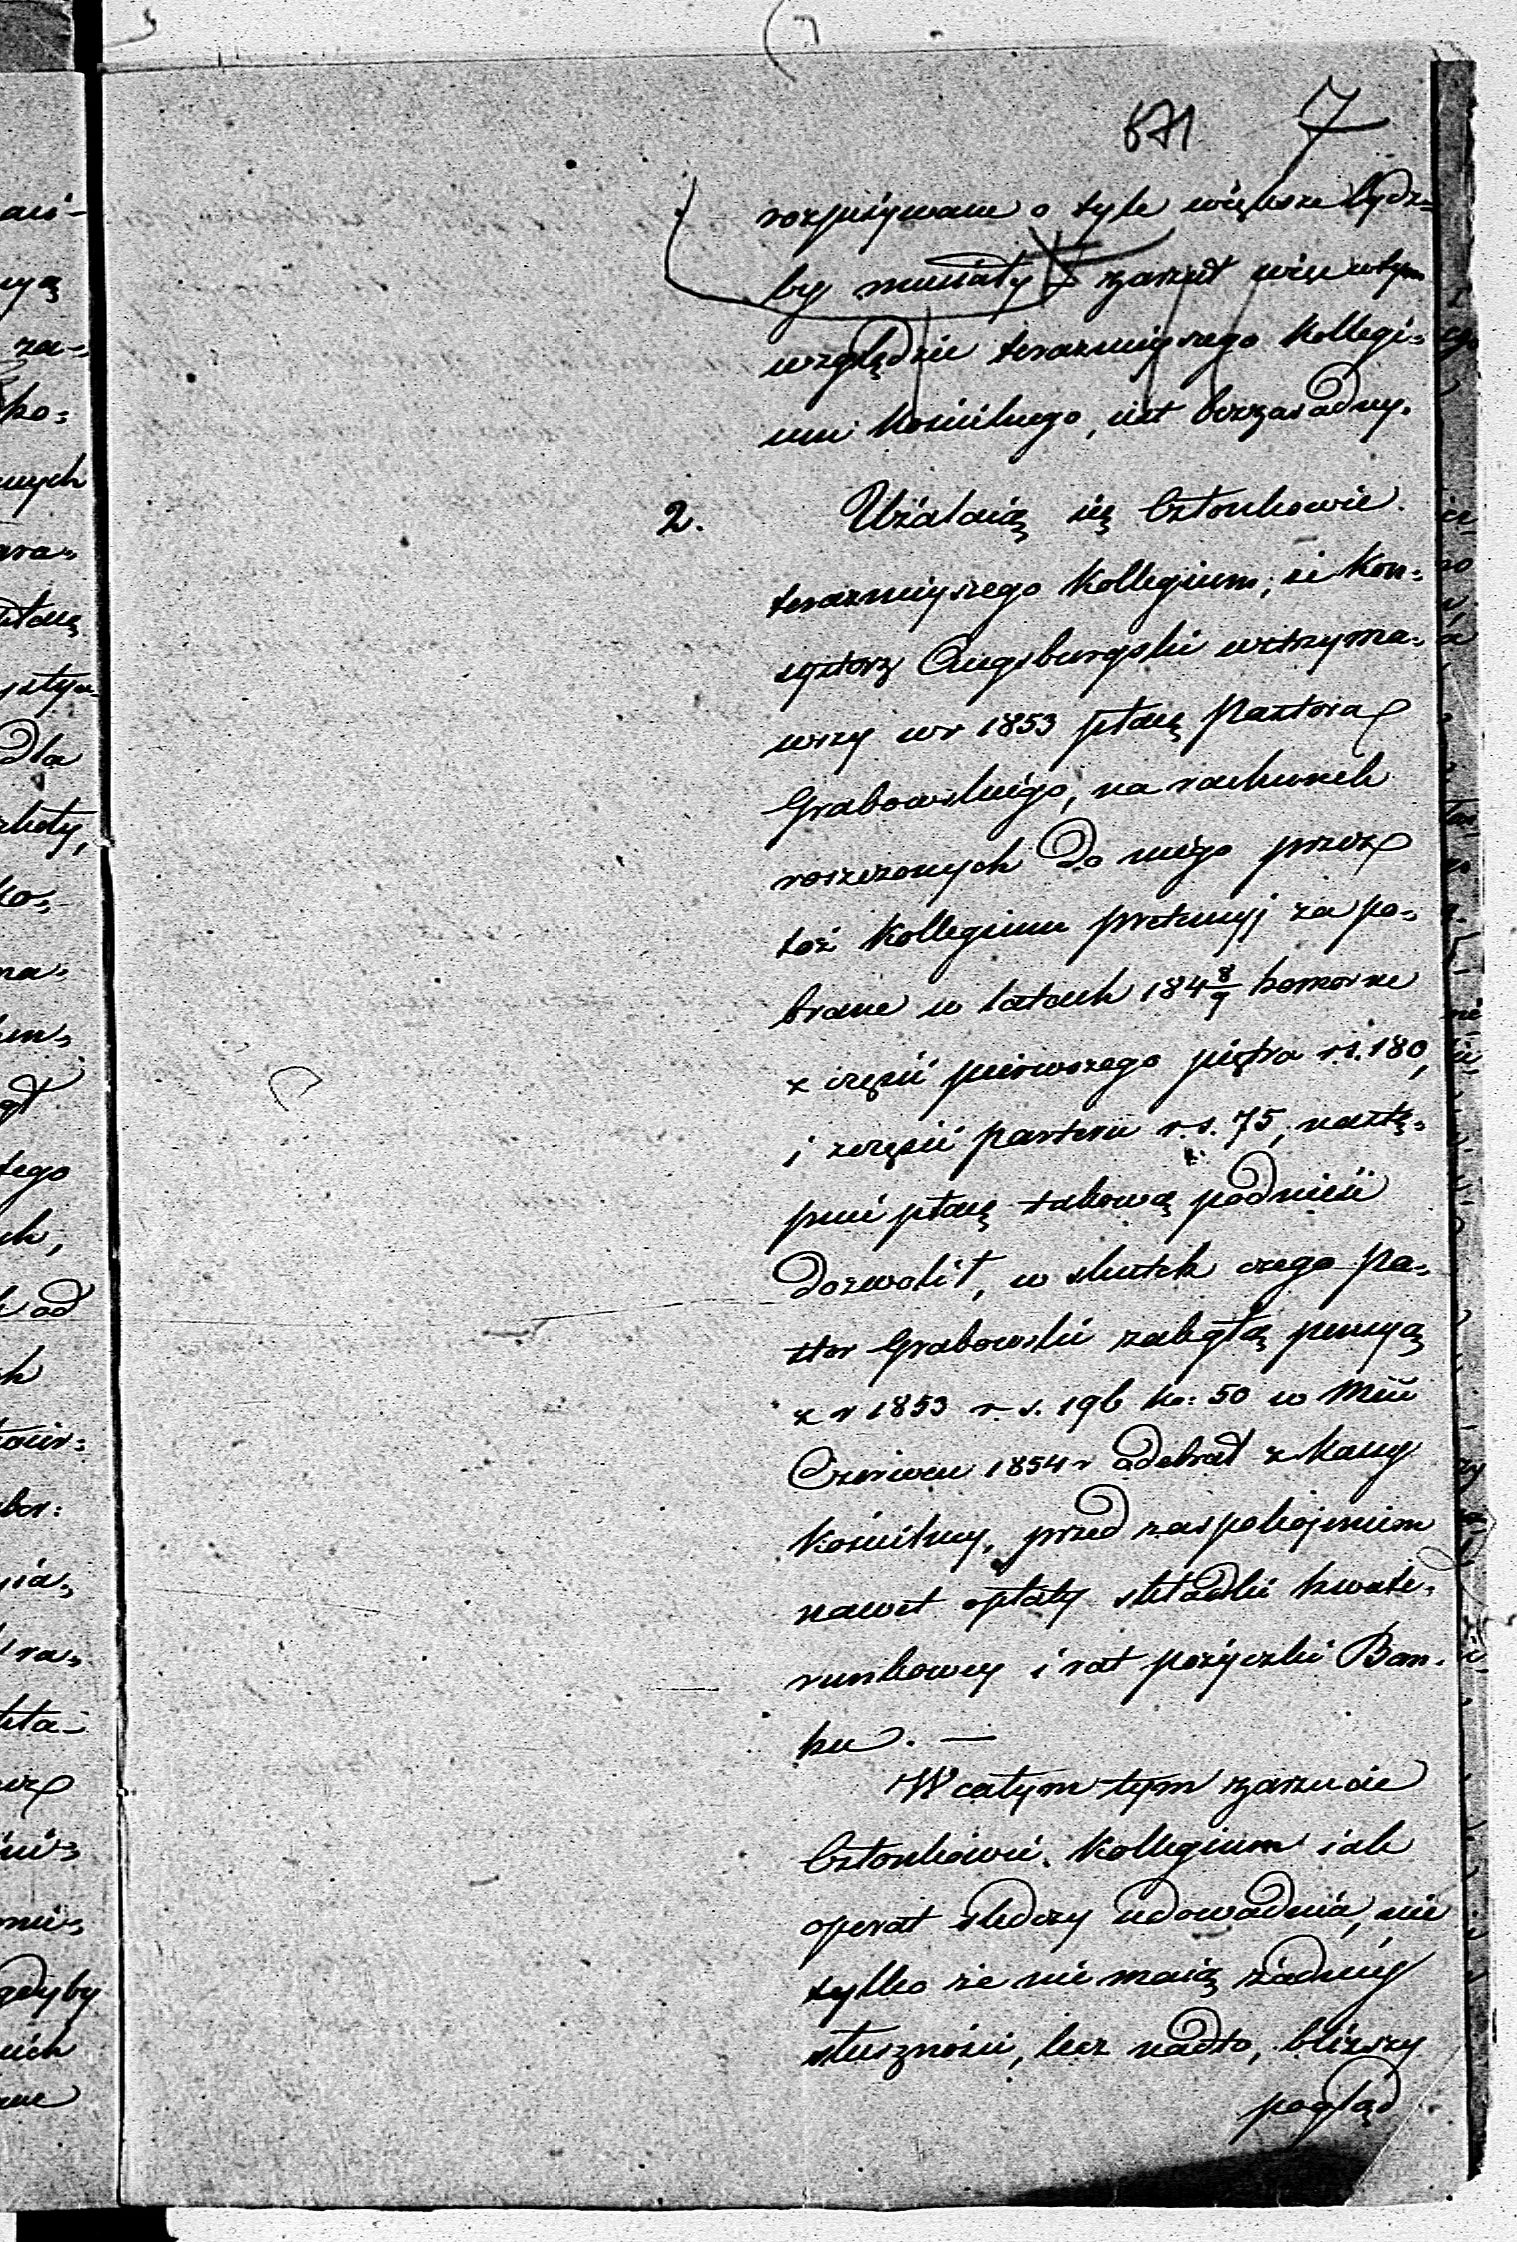 671 7
rozpisywane o tyle większe bydź=
by musiały zarzut więc w tym
względzie teraznieyszego Kollegi=
um Kościelnego, iest bezzasadny.
2. Użalaią się Członkowie
teraznieyszego Kollegium, że Kon=
systorz Augsburgski wstrzyma=
wszy w r 1853 płacę Pastora
Grabowskiego, na rachunek
roszczonych do niego przez
toż Kollegium pretensyj za po=
brane w latach 184 8/9 komorne
z części pierwszego piętra r.s. 180,
i z części parteru r.s. 75, nastę=
pnie płacę takową podnieść
dozwolił, w skutek czego Pa=
stor Grabowski zaległą pensyą
z r 1853 r. s. 196 ko: 50 w Mcu
Czerwcu 1854 r odebrał z Kassy
Kościelney, przed zaspokojeniem
nawet opłaty składki kwate=
runkowey i rat pożyczki Ban=
ku. —
W całym tym zarzucie
Członkowie Kollegium iak
operat śledczy udowadnia, nie
tylko że nie maią żadney
słuszności, lecz nadto, bliższy
pogląd